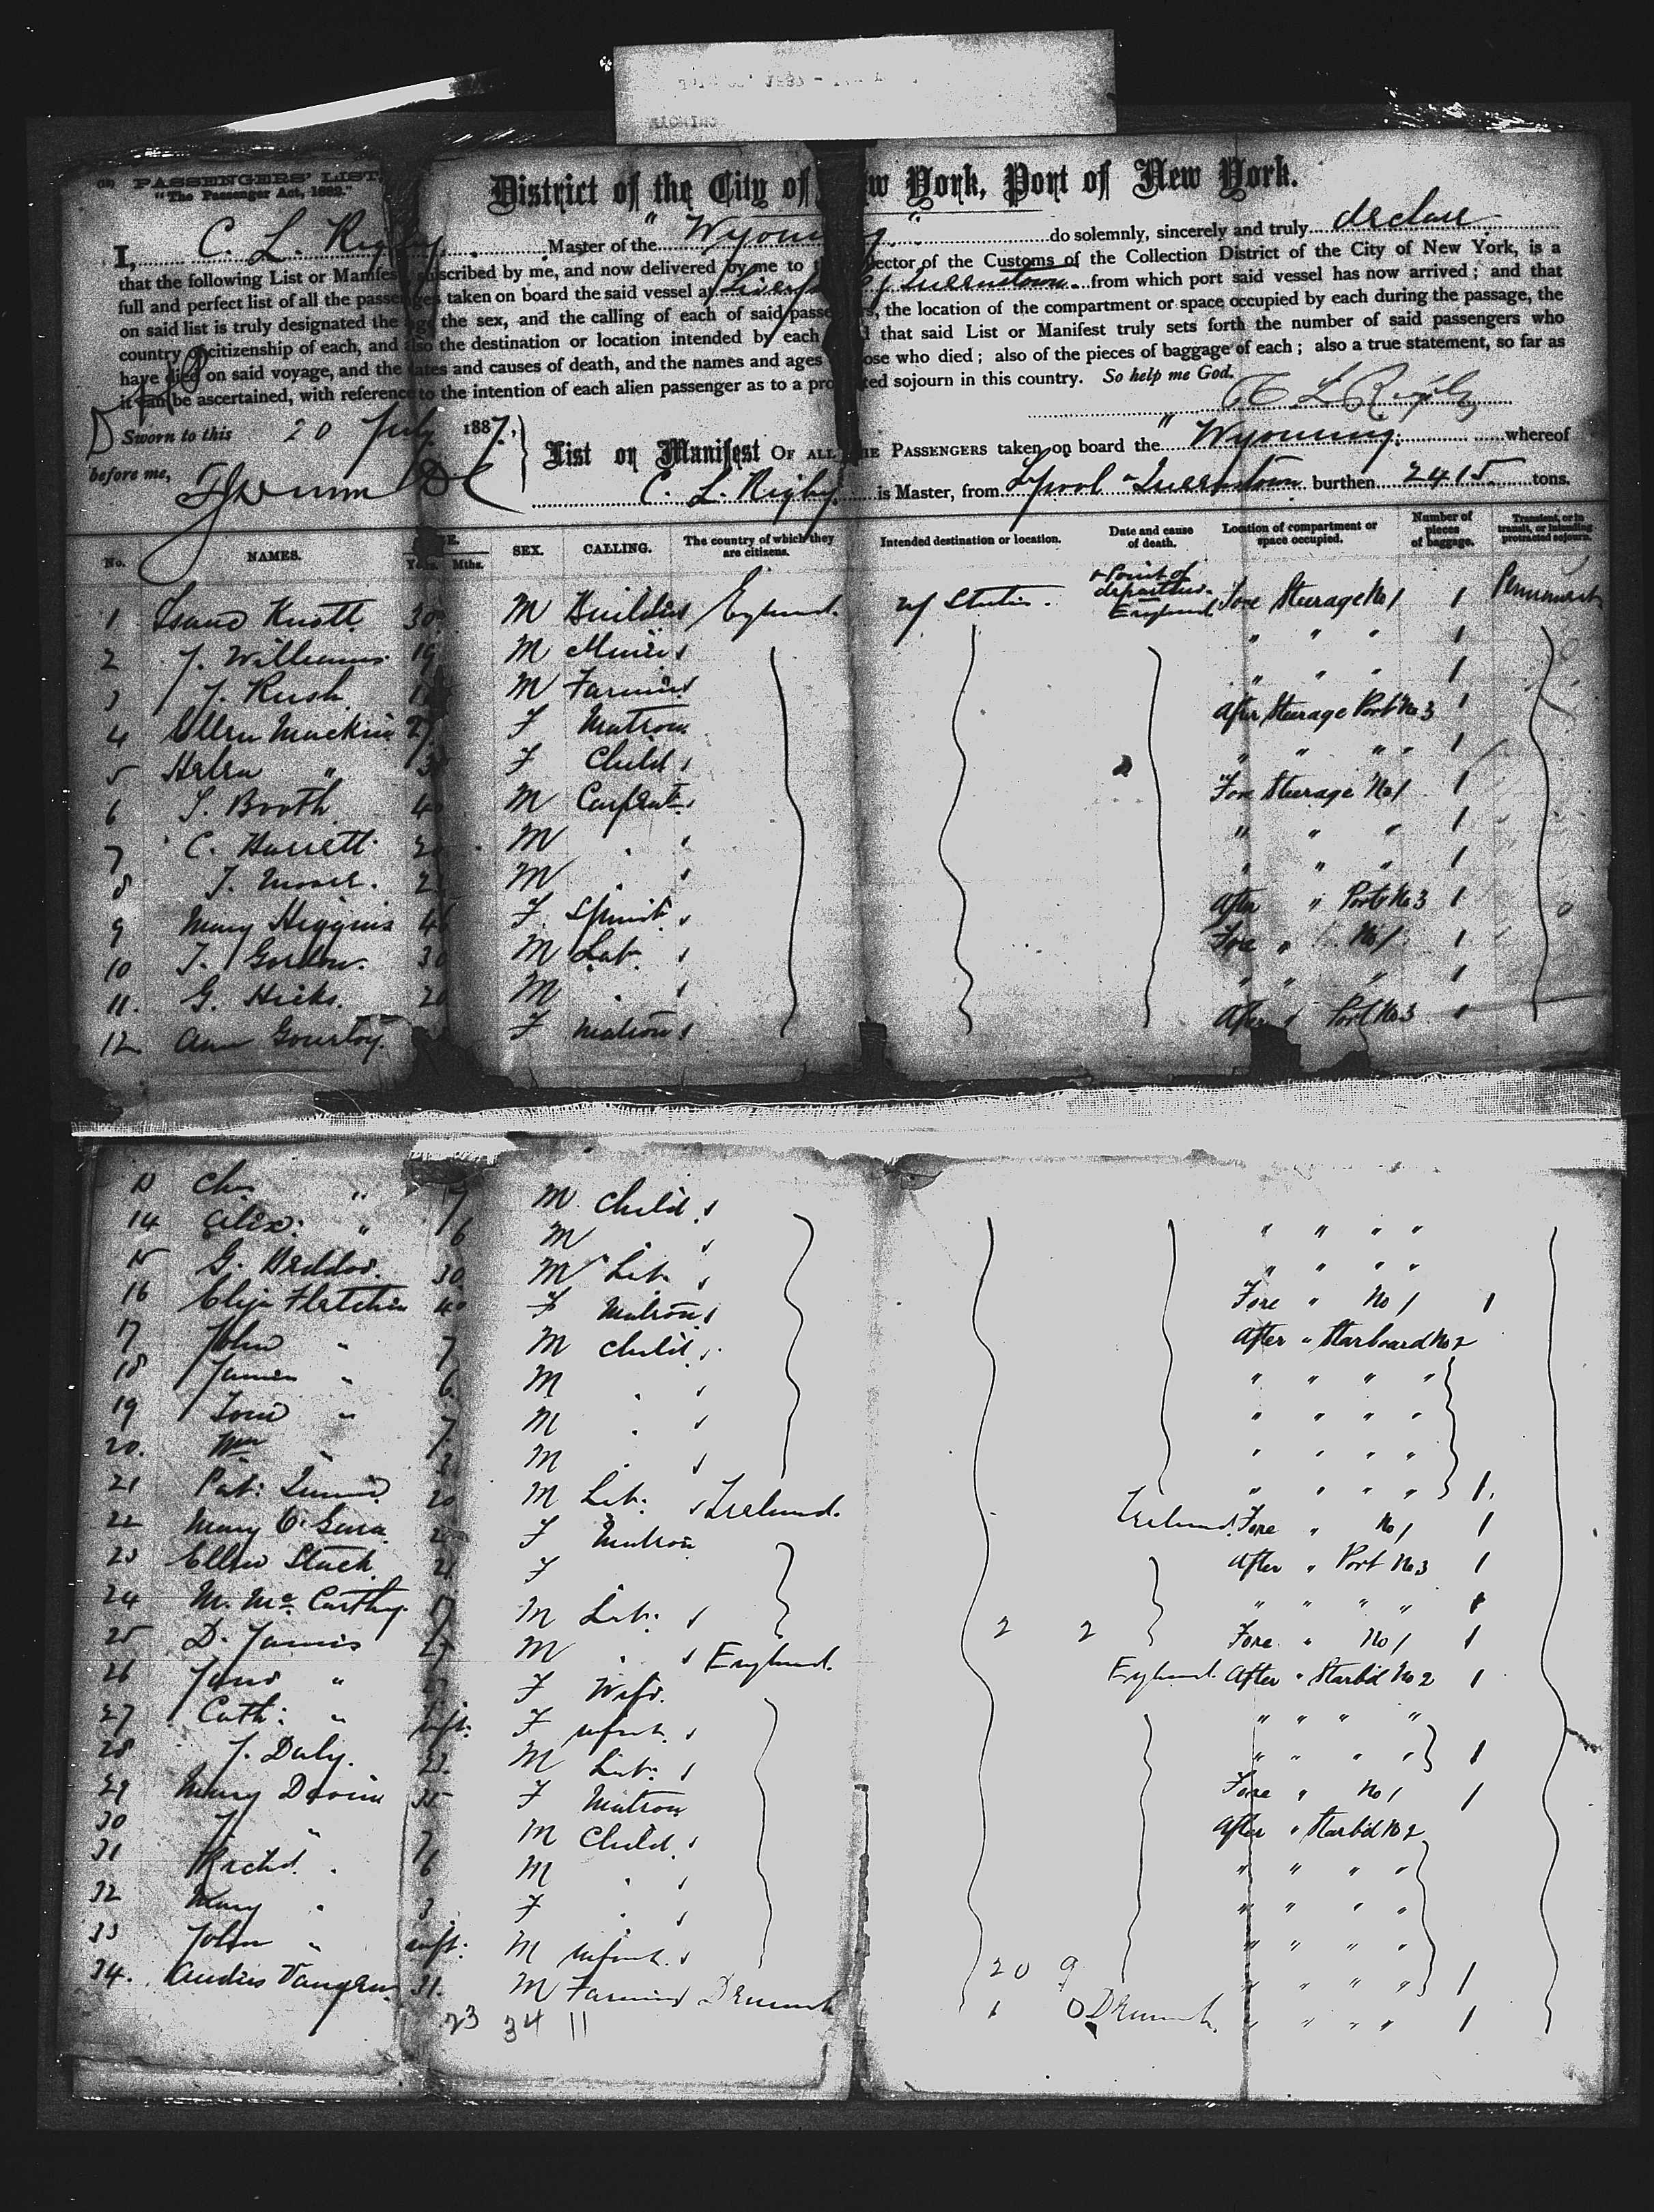 (18) PASSENGERS' LIST.
"The Passenger Act, 1882."
District of the City of New York, Port of New York.
I, C. L. Rigby, Master of the "Wyoming" do solemnly, sincerely and truly declare
that the following List or Manifest subscribed by me, and now delivered by me to the Collector of the Customs of the Collection District of the City of New York, is a
full and perfect list of all the passengers taken on board the said vessel at Liverpool & Queenstown from which port said vessel has now arrived; and that
on said list is truly designated the age the sex, and the calling of each of said passengers, the location of the compartment or space occupied by each during the passage, the
country of citizenship of each, and also the destination or location intended by each and that said List or Manifest truly sets forth the number of said passengers who
have died on said voyage, and the dates and causes of death, and the names and ages of those who died; also of the pieces of baggage of each; also a true statement, so far as
it can be ascertained, with reference to the intention of each alien passenger as to a protracted sojourn in this country. So help me God.
C. L. Rigby
Sworn to this 20 July 1887,
before me,
List or Manifest OF ALL THE PASSENGERS taken on board the "Wyoming" whereof
C. L. Rigby is Master, from L'pool & Queenstown burthen 2415 tons.
No. NAMES. AGE. Years. Mths. SEX. CALLING. The country of which they are citizens. Intended destination or location. Date and cause of death. Location of compartment or space occupied. Number of pieces of baggage. Transient, or in transit, or intending protracted sojourn.
& Point of departure.
1 Isaac Knott 30 M Builder England U States. England Fore Steerage No 1 1
2 J. Williams 19 M Miner " " " 1
3 J. Rush M Farmer " " " 1
4 Ellen Mackin 27 F Matron After Steerage Port No 3 1
5 Helen " F Child " " " " 1
6 S. Booth 40 M Carpent. Fore Steerage No 1 1
7 C. Barrett M " " " " 1
8 T. M " " " " 1
9 Mary Higgins 46 F Spinst. After " Port No 3 1
10 T. Gordon. 30 M Lab. Fore " No 1 1
11. G. Hicks. 20 M " " " " 1
12 Ann Gourloy. F Matron After " Port No 3 1
13 Chs " M Child " " " "
14 Alex: " 6 M " " " " "
15 G. Beddos. 30 M Lab. Fore " No 1 1
16 Eliza Fletcher 40 F Matron After " Starboard No 2
17 John " 7 M Child " " " "
18 James " 6 M " " " " "
19 " 7 M " " " " "
20. Wm " M " " " " " 1
21 Pat: 20 M Lab. Ireland. Ireland. Fore " No 1 1
22 Mary O'Gara F Matron After " Port No 3 1
23 Ellen Stack 21 F " " " " 1
24 M. McCarthy. 17 M Lab: 2 2 Fore " No 1 1
25 D. James 27 M " England. England. After " Starb'd No 2 1
26 Jane " 27 F Wife. " " " "
27 Cath: " inft: F infant. " " " " 1
28 J. Daly. 23. M Lab: Fore " No 1 1
29 Mary 35 F Matron After " Starb'd No 2
30 J " 7 M Child. " " " "
31 Richd. " 6 M " " " " "
32 Mary " 3 F " " " " "
33 John " inft: M infant. 20 9 " " " " 1
34. 31. M Farmer Denmark 1 0 Denmark. " " " " 1
23 34 11